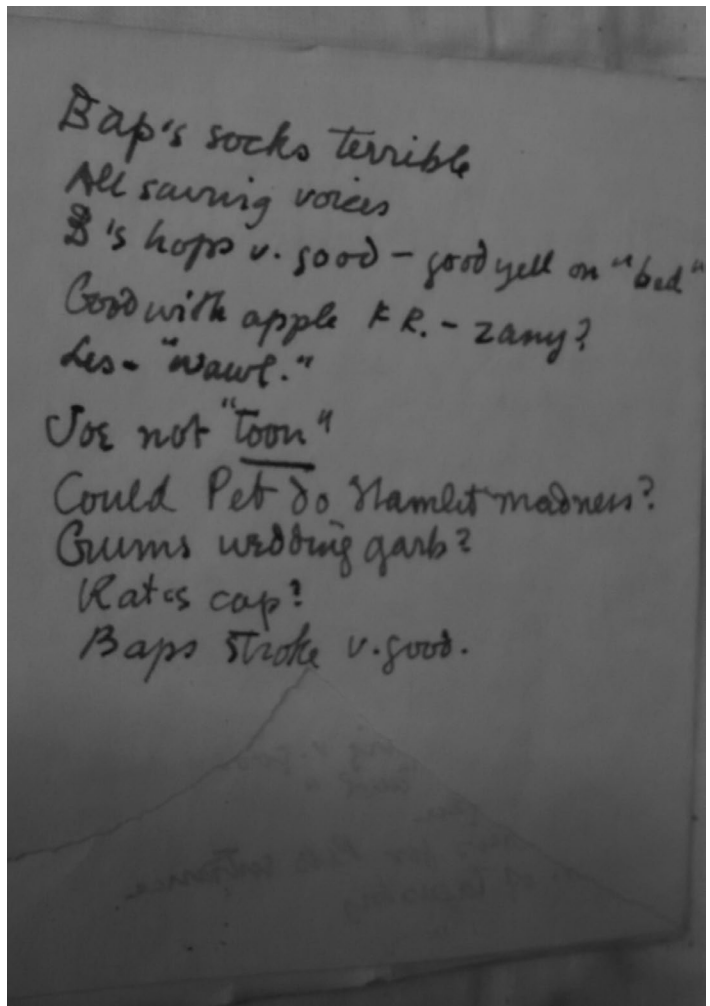 Bap's socks terrible
All saving voices
B's hops v. good – good yell on "bed"
Good with apple K R. – zany?
Les – "Wawl."
Joe not "toon"
Could Pet do Hamlet madness?
Grums wedding garb?
Kates cap?
Baps stroke v. good.